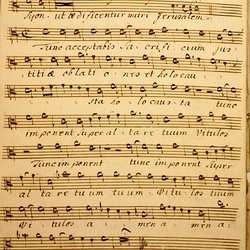 Syon. ut ædificentur muri Jerusalem.
Tunc acceptabis Sa - crifi cium Jus -
titiæ oblati o - nes et holo cau -
sta ho - lo caus - ta tunc
imponent Super al - ta re tuum Vitulos
Tunc imponent tunc imponent Super
al ta re tu um tu um. Vi tu - los tuum
Vi tu los a - men a - men a -